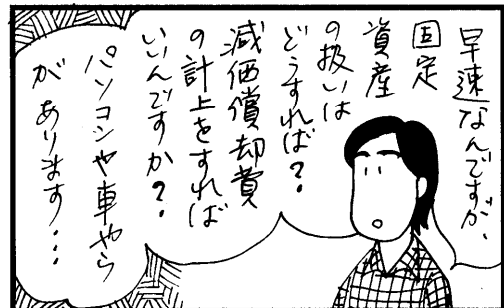 早速なんですが、
固定
資産
の扱いは
どうすれば?
減価償却費
の計上をすれば
いいんですか?
パソコンや車やら
があります…